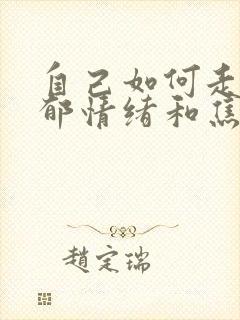 自己如何走
郁情绪和焦
趙定瑞